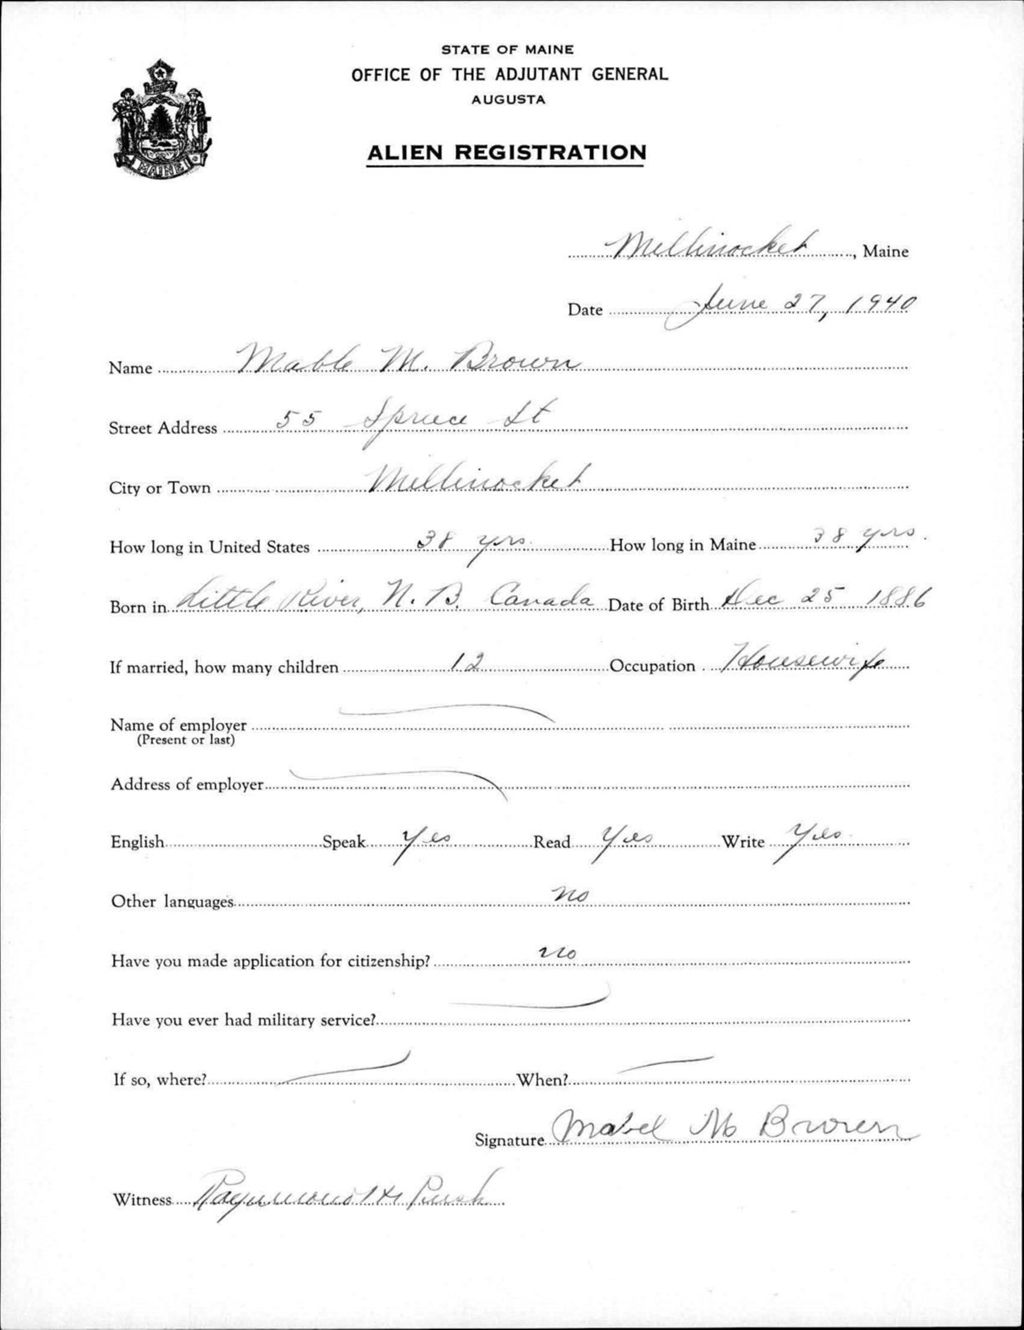 STATE OF MAINE
OFFICE OF THE ADJUTANT GENERAL
AUGUSTA
ALIEN REGISTRATION
MAINE
Millinocket, Maine
Date June 27, 1940
Name Mable M. Brown
Street Address 55 Spruce St
City or Town Millinocket
How long in United States 38 yrs. How long in Maine 38 yrs.
Born in Little River, N. B. Canada Date of Birth Dec 25 1886
If married, how many children 12 Occupation Housewife
Name of employer
(Present or last)
Address of employer
English Speak Yes Read Yes Write Yes
Other languages no
Have you made application for citizenship? no
Have you ever had military service?
If so, where? When?
Signature Mabel M Brown
Witness Raymond H.